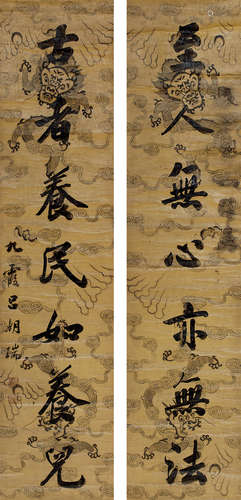 至人無心亦無法
古者養民如養兒
九霞呂朝瑞